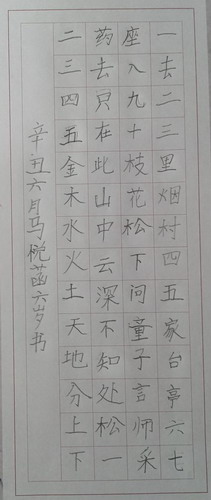 一去二三里烟村四五家台亭六七
座八九十枝花松下问童子言师采
药去只在此山中云深不知处松一
二三四五金木水火土天地分上下
辛丑六月马菡六岁书